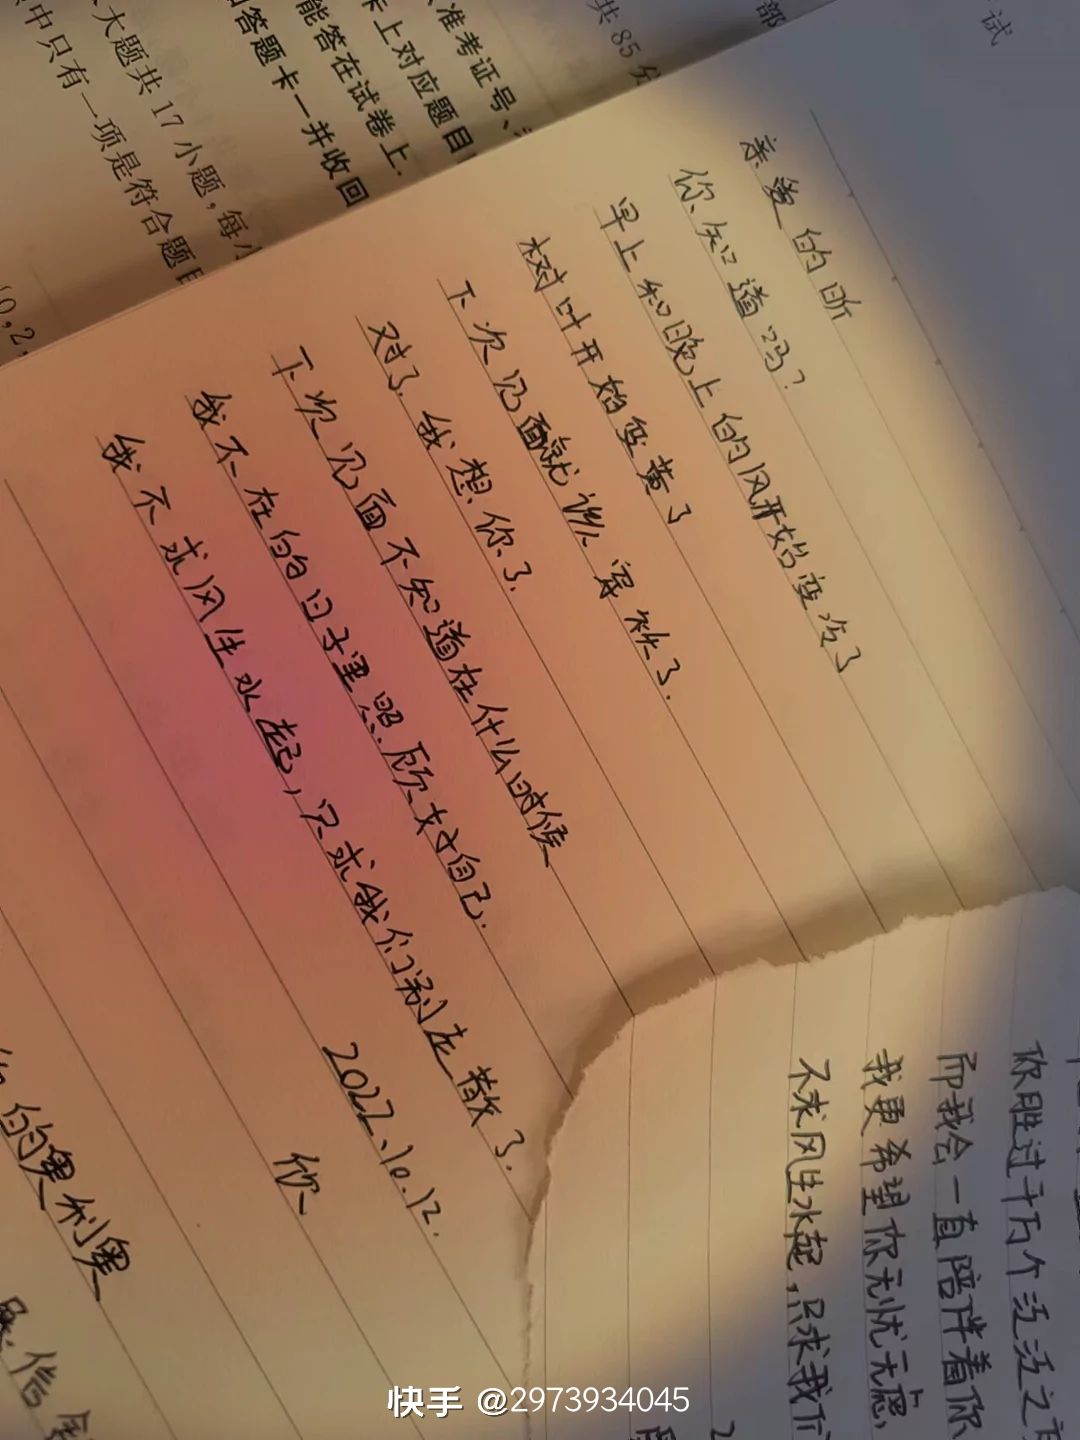 亲爱的昕
你知道吗?
早上和晚上的风开始变冷了
树叶开始变黄了
下次见面就该穿秋了.
对了.我想你了.
下次见面不知道在什么时候
我不在的日子里照顾好自己.
我不求风生水起,只求我们别走散了.
2022.10.12.
你
的奥利奥
你胜过千万个泛泛之
而我会一直陪伴着你
我更希望你无忧无虑,
不求风生水起,只求我们
准考证号、
卡上对应题目
能答在试卷上.
答题卡一并收回
大题共17小题,每小
中只有一项是符合题目
共85分
部
试
信
快手 @2973934045